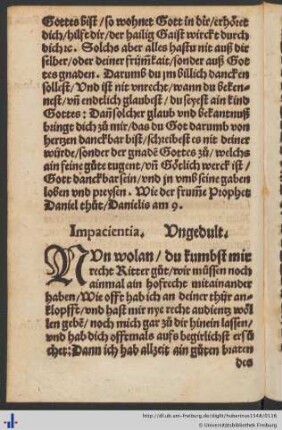 Gottes bist / so wohnet Gott in dir / erhöret
dich / hilft dir / der hailig Gaist wirckt durch
dich ꝛc. Solchs aber alles hastu nit auß dir
selber / oder deiner frümkait / sonder auß Got
tes gnaden. Darumb du jm billich dancken
sollest / Vnd ist nit vnrecht / wann du beken-
nest / vn̄ endtlich glaubest / du seyest ain kind
Gottes: Dan̄ solcher glaub vnd bekantnuß
bringt dich zů mir / das du Got darumb von
hertzen danckbar bist / schreibest es nit deiner
würde / sonder der gnadē Gottes zů / welchs
ain feine gůte tugent / vn̄ Götlich werck ist /
Gott danckbar sein / vnd jn vmb seine gaben
loben vnd preysen. Wie der frum̄e Prophet
Daniel thůt / Danielis am 9.
Impacientia. Vngedult.
NVn wolan / du kumbst mir
recht Ritter gůt / wir müssen noch
ainmal ain hofrecht mitainander
haben / Wie offt hab ich an deiner thür an-
klopfft / vnd hast mir nye recht audientz wöl
len gebē / noch mich gar zů dir hinein lassen /
vnd hab dich offtmals auffs begirlichst ersů
chet: Dann ich hab allzeit ain gůten
des
http://dl.ub.uni-freiburg.de/diglit/huberinus1548/0116
© Universitätsbibliothek Freiburg